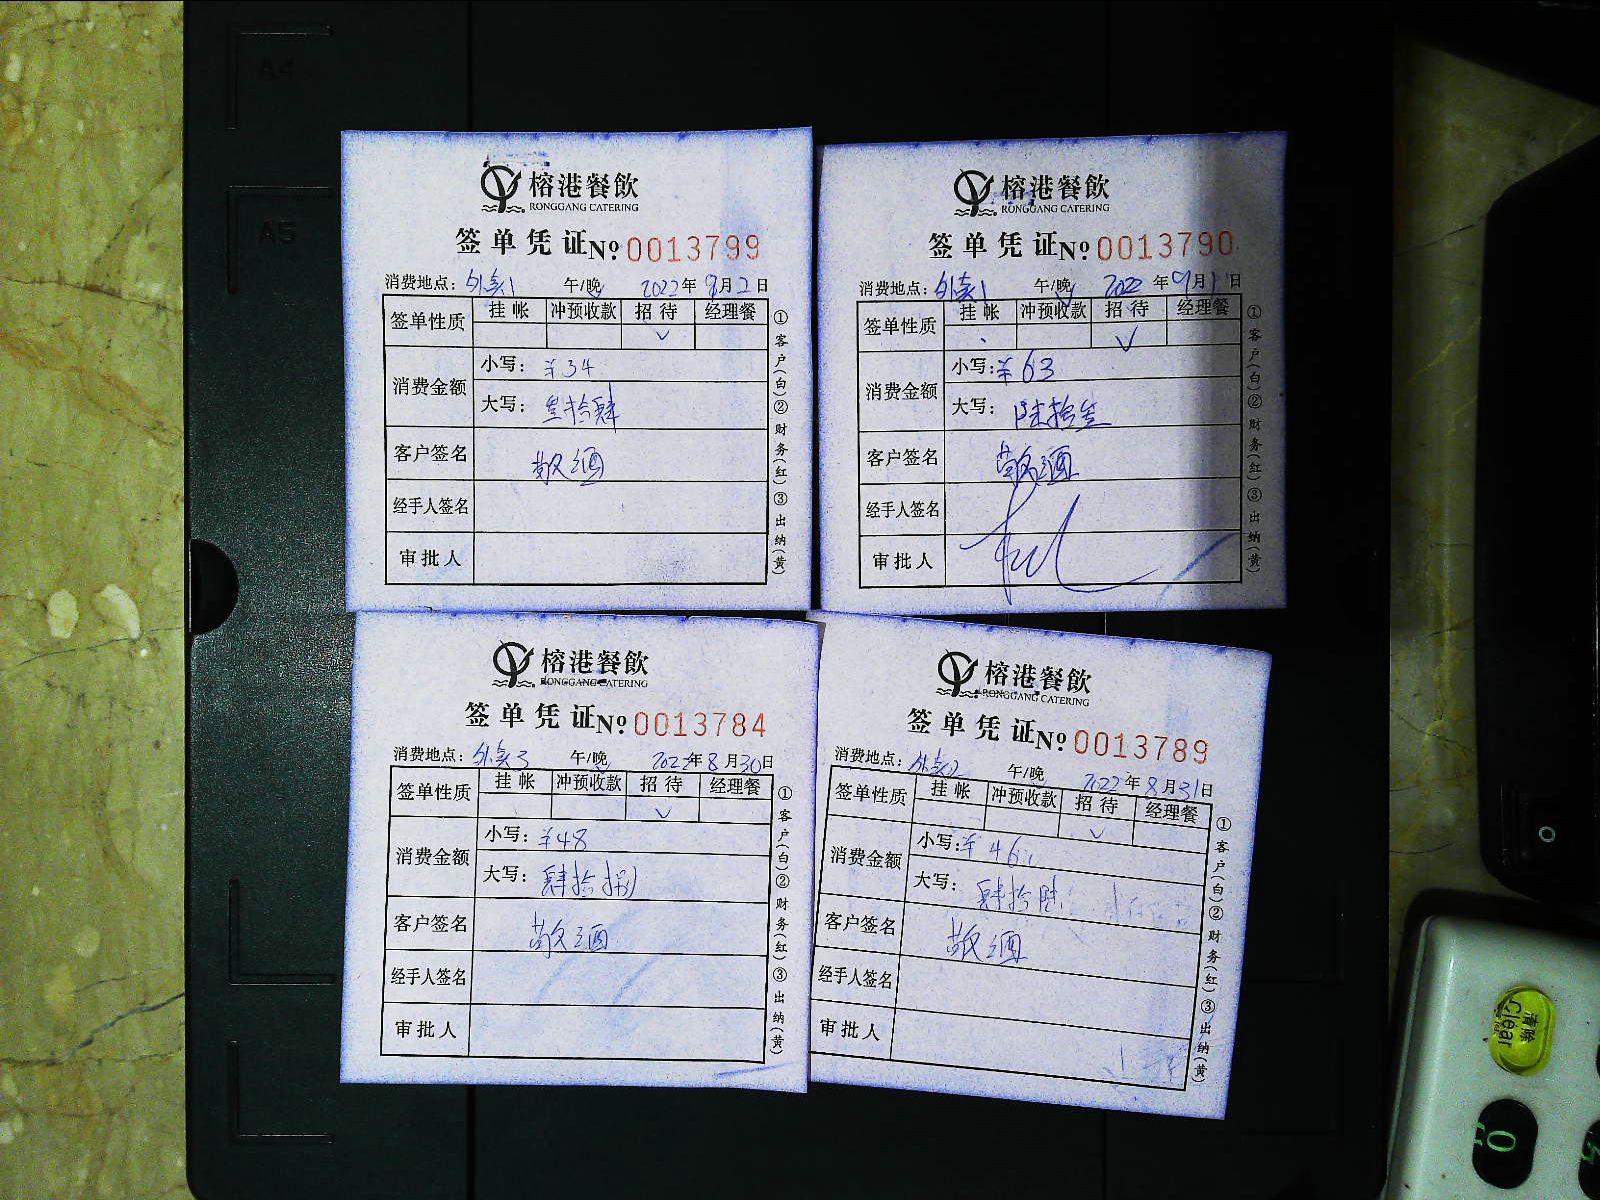 A4
A5
榕港餐飲
RONGGANG CATERING
签单凭证№ 0013799
消费地点：外卖1 午/晚 2022年9月2日
签单性质 挂帐 冲预收款 招待 经理餐
✓
消费金额 小写：¥34
大写：叁拾肆
客户签名
经手人签名
审批人
①客户(白)②财务(红)③出纳(黄)
榕港餐飲
RONGGANG CATERING
签单凭证№ 0013790
消费地点：外卖1 午/晚 2022年9月1日
签单性质 挂帐 冲预收款 招待 经理餐
✓
消费金额 小写：¥63
大写：陆拾叁
客户签名
经手人签名
审批人
①客户(白)②财务(红)③出纳(黄)
榕港餐飲
RONGGANG CATERING
签单凭证№ 0013784
消费地点：外卖3 午/晚 2022年8月30日
签单性质 挂帐 冲预收款 招待 经理餐
✓
消费金额 小写：¥48
大写：肆拾捌
客户签名
经手人签名
审批人
①客户(白)②财务(红)③出纳(黄)
榕港餐飲
RONGGANG CATERING
签单凭证№ 0013789
消费地点：外卖2 午/晚 2022年8月31日
签单性质 挂帐 冲预收款 招待 经理餐
✓
消费金额 小写：¥46
大写：肆拾陆
客户签名
经手人签名
审批人
①客户(白)②财务(红)③出纳(黄)
清除
Clear
0